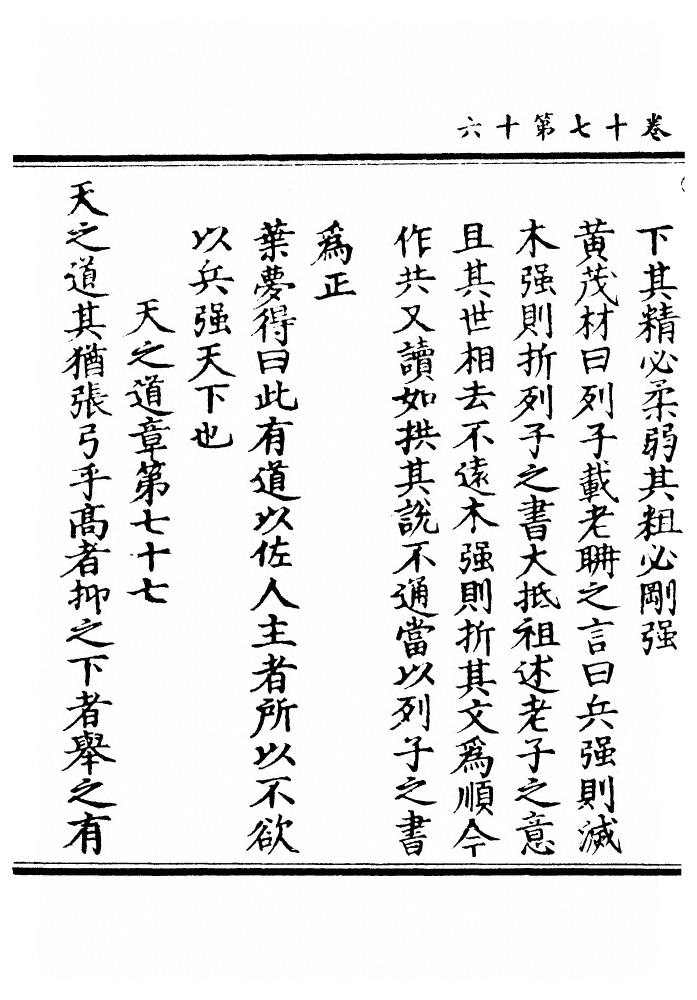 卷十七第十六
下其精必柔弱其粗必剛强
黄茂材曰列子載老聃之言曰兵强則滅
木强則折列子之書大抵祖述老子之意
且其世相去不遠木强則折其文爲順今
作共又讀如拱其說不通當以列子之書
爲正
葉夢得曰此有道以佐人主者所以不欲
以兵强天下也
天之道章第七十七
天之道其猶張弓乎高者抑之下者舉之有